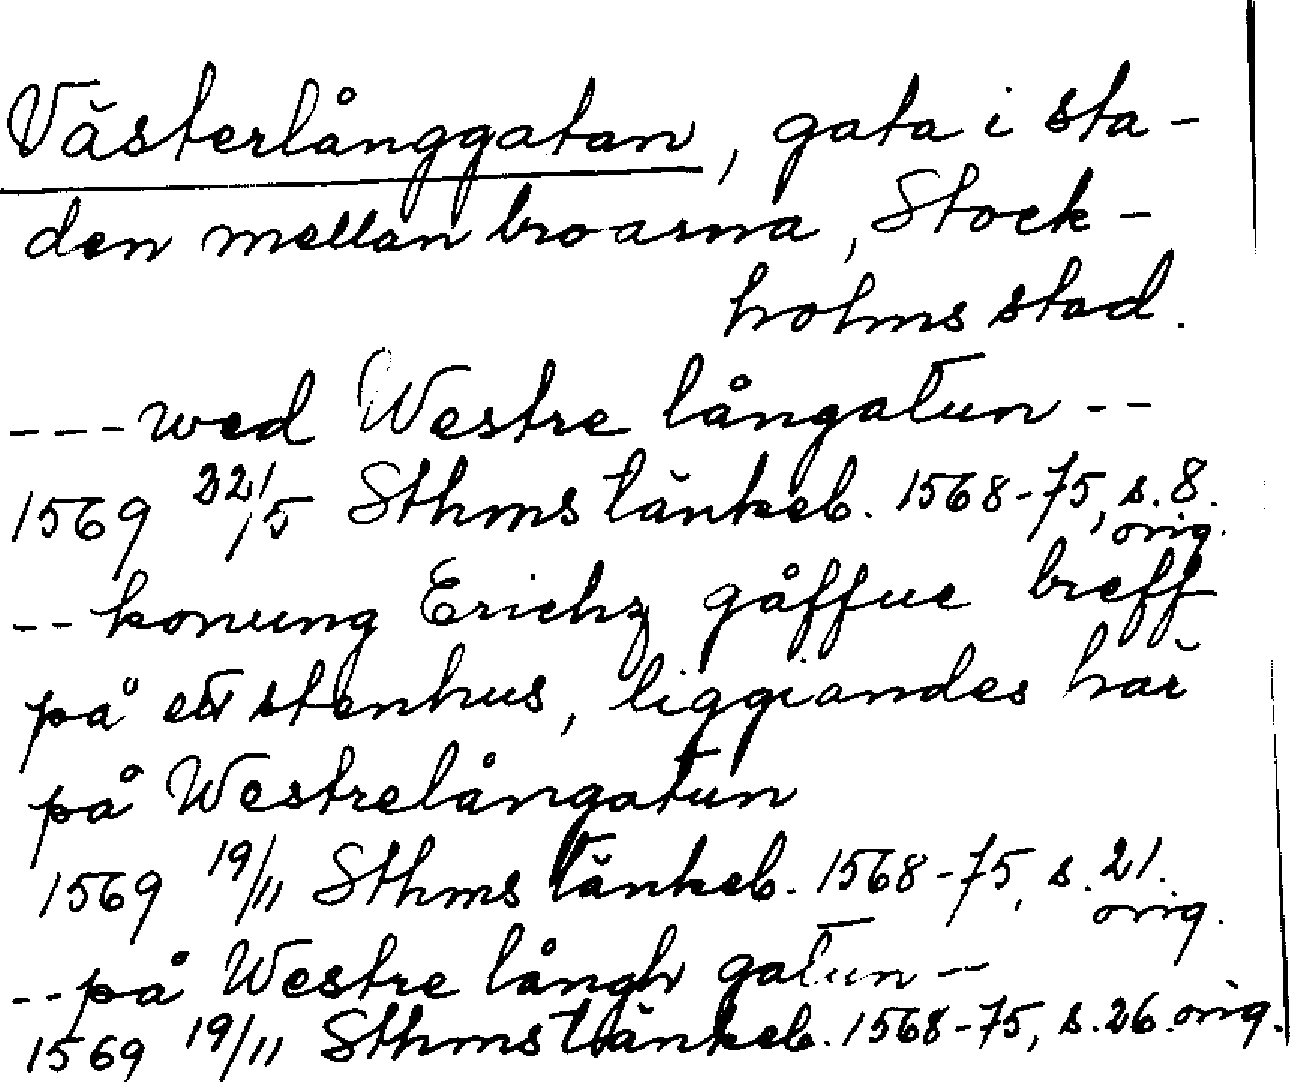 Västerlånggatan, gata i sta-
den mellan broarna, Stock-
holms stad.
--- wed Westre långatun --
1569 22/5 Sthms tänkeb. 1568-75, s. 8.
orig.
-- konung Erichz gåffue breff
på ett stenhus, liggiandes här
på Westrelångatun
1569 19/11 Sthms tänkeb. 1568-75, s. 21.
orig.
-- på Westre långh gatun --
1569 19/11 Sthms tänkeb. 1568-75, s. 26. orig.